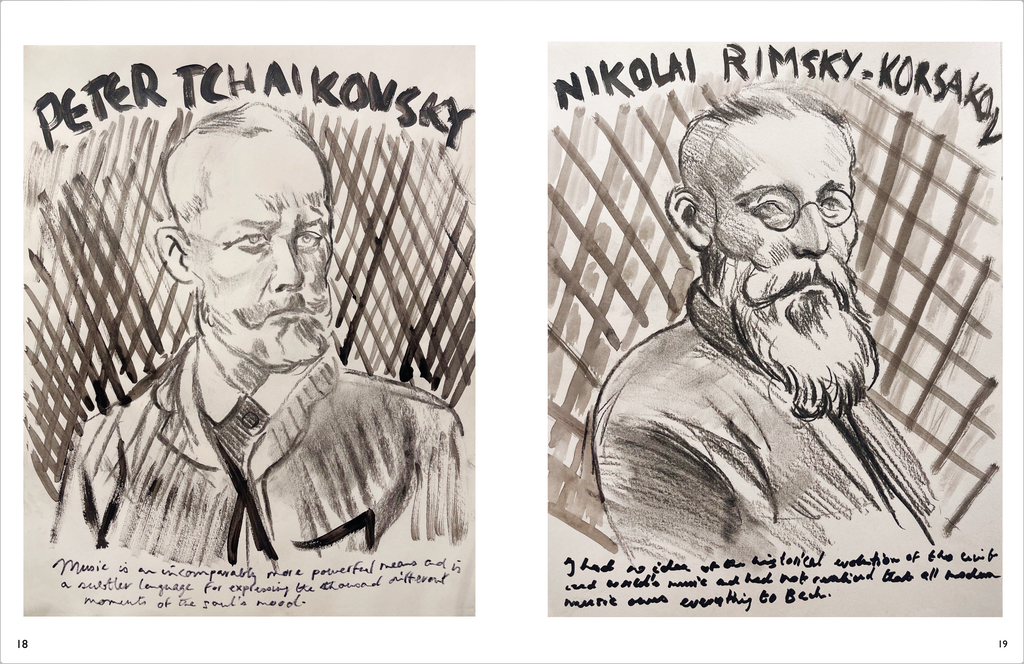 PETER TCHAIKOVSKY
Music is an incomparably more powerful means and is
a subtler language for expressing the thousand different
moments of the soul's mood.
18
NIKOLAI RIMSKY-KORSAKOV
I had no idea of the historical evolution of the civil
ized world's music and had not realized that all modern
music owes everything to Bach.
19